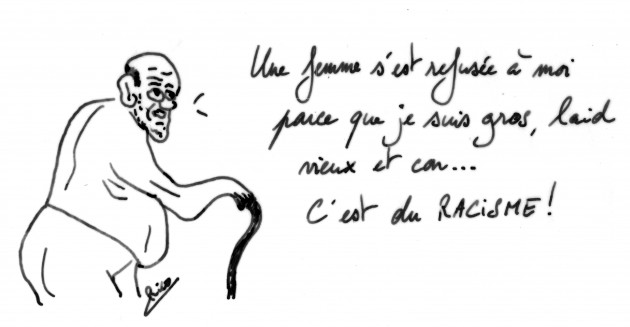 Une femme s'est refusée à moi
parce que je suis gros, laid
vieux et con...
C'est du RACISME!